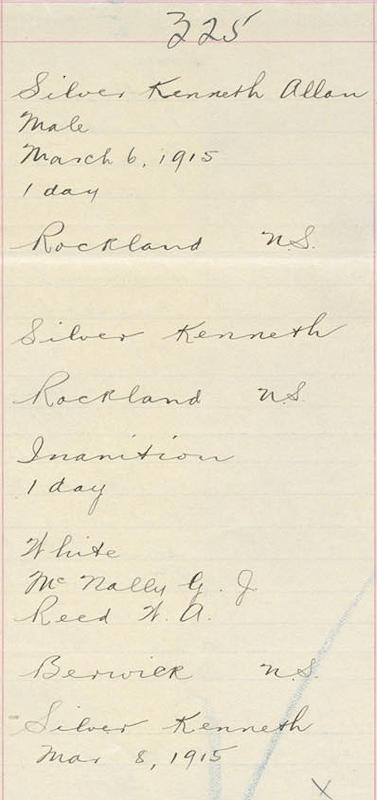 325
Silver Kenneth Allan
Male
March 6, 1915
1 day
Rockland N.S.
Silver Kenneth
Rockland N.S.
Inanition
1 day
White
McNally G. J.
Reed W. A.
Berwick N.S.
Silver Kenneth
Mar 8, 1915
X